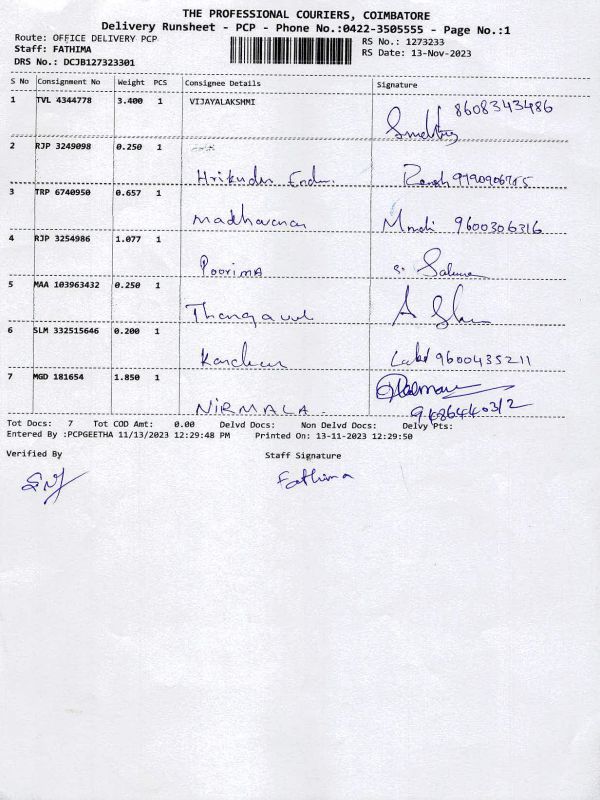 THE PROFESSIONAL COURIERS, COIMBATORE
Delivery Runsheet - PCP - Phone No.:0422-3505555 - Page No.:1
Route: OFFICE DELIVERY PCP RS No.: 1273233
Staff: FATHIMA RS Date: 13-Nov-2023
DRS No.: DCJB127323301
S No Consignment No Weight PCS Consignee Details Signature
1 TVL 4344778 3.400 1 VIJAYALAKSHMI 8608343486
2 RJP 3249098 0.250 1
3 TRP 6740950 0.657 1 Madhavanan 9600306316
4 RJP 3254986 1.077 1 POORIMA
5 MAA 103963432 0.250 1 Thangavel
6 SLM 332515646 0.200 1 9600435211
7 MGD 181654 1.850 1 NIRMALA
Tot Docs: 7 Tot COD Amt: 0.00 Delvd Docs: Non Delvd Docs: Delvy Pts:
Entered By :PCPGEETHA 11/13/2023 12:29:48 PM Printed On: 13-11-2023 12:29:50
Verified By Staff Signature
Fathima